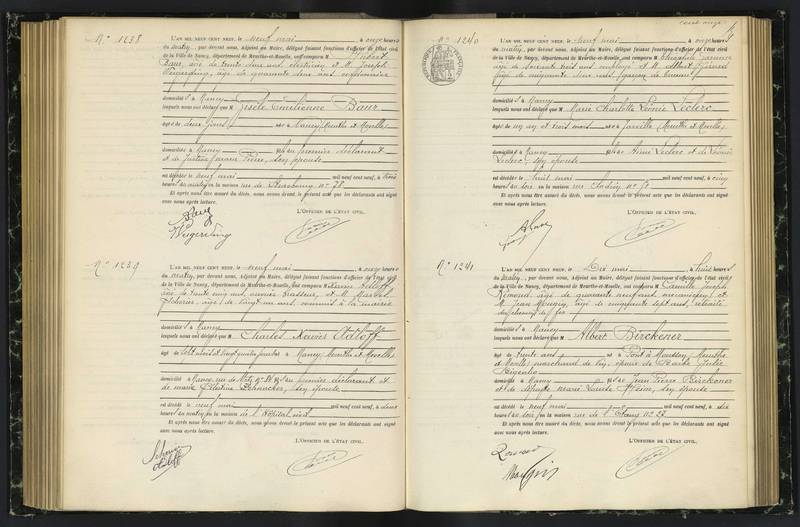 N° 1238
L'AN MIL NEUF CENT NEUF, le neuf mai à onze heures
du matin, par devant nous, Adjoint au Maire, délégué faisant fonctions d'officier de l'état civil
de la Ville de Nancy, département de Meurthe-et-Moselle, ont comparu M Hubert
Baur, âgé de trente deux ans, et M. Joseph
Weigerding, âgé de quarante deux ans
domiciliés à Nancy
lesquels nous ont déclaré que M Gisèle Emilienne Baur
âgé de deux jours né à Nancy (Meurthe et Moselle)
domicilié à Nancy fille du premier déclarant
et de son épouse
est décédé le neuf mai mil neuf cent neuf, à trois
heures du matin en la maison rue de Strasbourg n° 78
Et après nous être assuré du décès, nous avons dressé le présent acte que les déclarants ont signé
avec nous après lecture.
L'OFFICIER DE L'ÉTAT CIVIL.
Baur
Weigerding
N° 1239
L'AN MIL NEUF CENT NEUF, le neuf mai à onze heures
du matin, par devant nous, Adjoint au Maire, délégué faisant fonctions d'officier de l'état civil
de la Ville de Nancy, département de Meurthe-et-Moselle, ont comparu M Adloff
âgé de trente cinq ans, ouvrier brasseur, et M.
âgé de vingt un ans, commis à la mairie
domiciliés à Nancy
lesquels nous ont déclaré que M Charles Xavier Adloff
âgé de sept mois et vingt quatre jours né à Nancy, Meurthe et Moselle
domicilié à Nancy, rue de Metz fils du premier déclarant et
de Marie son épouse
est décédé le neuf mai mil neuf cent neuf, à deux
heures du matin en la maison de l'hôpital civil
Et après nous être assuré du décès, nous avons dressé le présent acte que les déclarants ont signé
avec nous après lecture.
L'OFFICIER DE L'ÉTAT CIVIL.
Adloff
N° 1240
L'AN MIL NEUF CENT NEUF, le neuf mai à onze heures
du matin, par devant nous, Adjoint au Maire, délégué faisant fonctions d'officier de l'état civil
de la Ville de Nancy, département de Meurthe-et-Moselle, ont comparu M
âgé de soixante trois ans, employé et M. Albert Gérard
âgé de cinquante ans, garçon de bureau
domiciliés à Nancy
lesquels nous ont déclaré que M Marie Charlotte Léonie Leclerc
âgé de un an et trois mois née à Jarville (Meurthe et Moselle)
domiciliée à Nancy fille de Aimé Leclerc et de Léonie
Leclerc, son épouse
est décédé le huit mai mil neuf cent neuf, à cinq
heures du soir en la maison rue
Et après nous être assuré du décès, nous avons dressé le présent acte que les déclarants ont signé
avec nous après lecture.
L'OFFICIER DE L'ÉTAT CIVIL.
N° 1241
L'AN MIL NEUF CENT NEUF, le Dix mai à huit heures
du matin, par devant nous, Adjoint au Maire, délégué faisant fonctions d'officier de l'état civil
de la Ville de Nancy, département de Meurthe-et-Moselle, ont comparu M Camille Joseph
Rémond, âgé de quarante neuf ans, mécanicien, et
M. Jean Mougin, âgé de cinquante sept ans, retraité
du chemin de fer
domiciliés à Nancy
lesquels nous ont déclaré que M Albert Birckener
âgé de trente ans né à Pont à Mousson, (Meurthe
et Moselle) marchand de vin, époux de Marie Julie
domicilié à Nancy fils de Jean Pierre Birckener
et de Marie Louise son épouse
est décédé le neuf mai mil neuf cent neuf, à dix
heures du soir en la maison rue de l' n° 27
Et après nous être assuré du décès, nous avons dressé le présent acte que les déclarants ont signé
avec nous après lecture.
L'OFFICIER DE L'ÉTAT CIVIL.
Rémond
Mougin